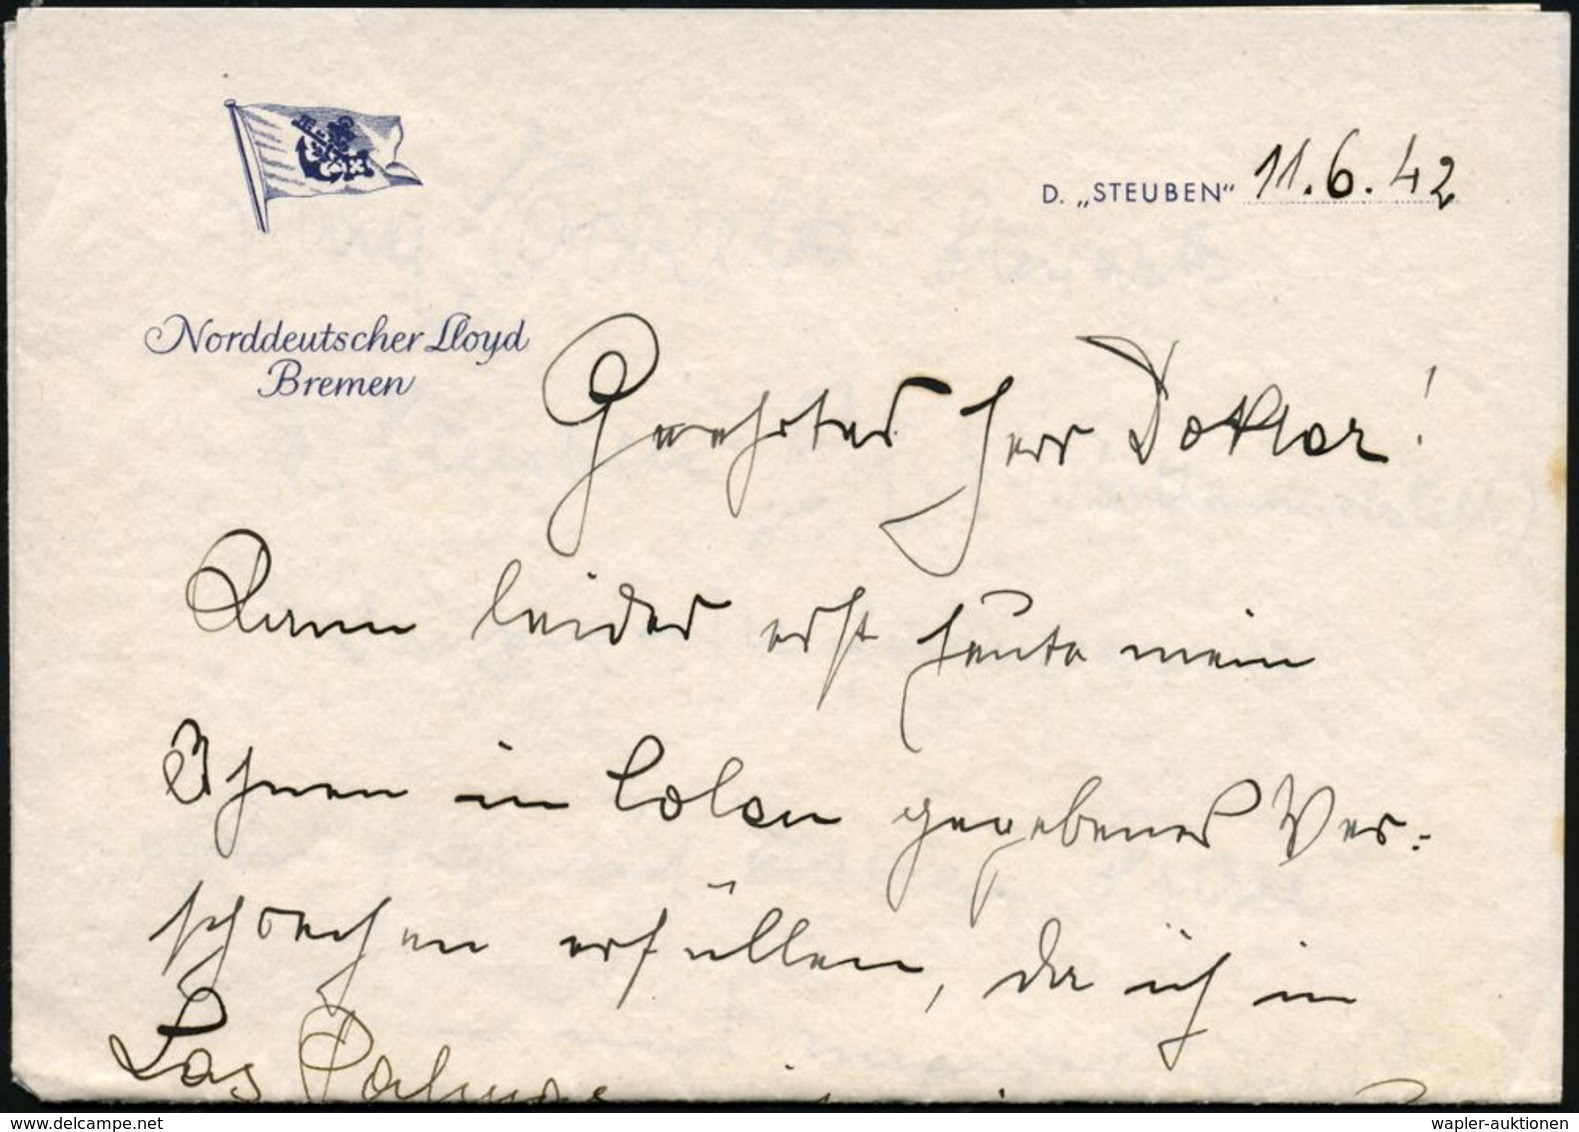 D. „STEUBEN" 11.6.42
Norddeutscher Lloyd
Bremen
Geehrter Herr Doktor!
Kann leider erst heute mein
Ihnen in Colon gegebenes Ver-
sprechen erfüllen, da ich in
Las Palmas
delcampe.net
wapler-auktionen